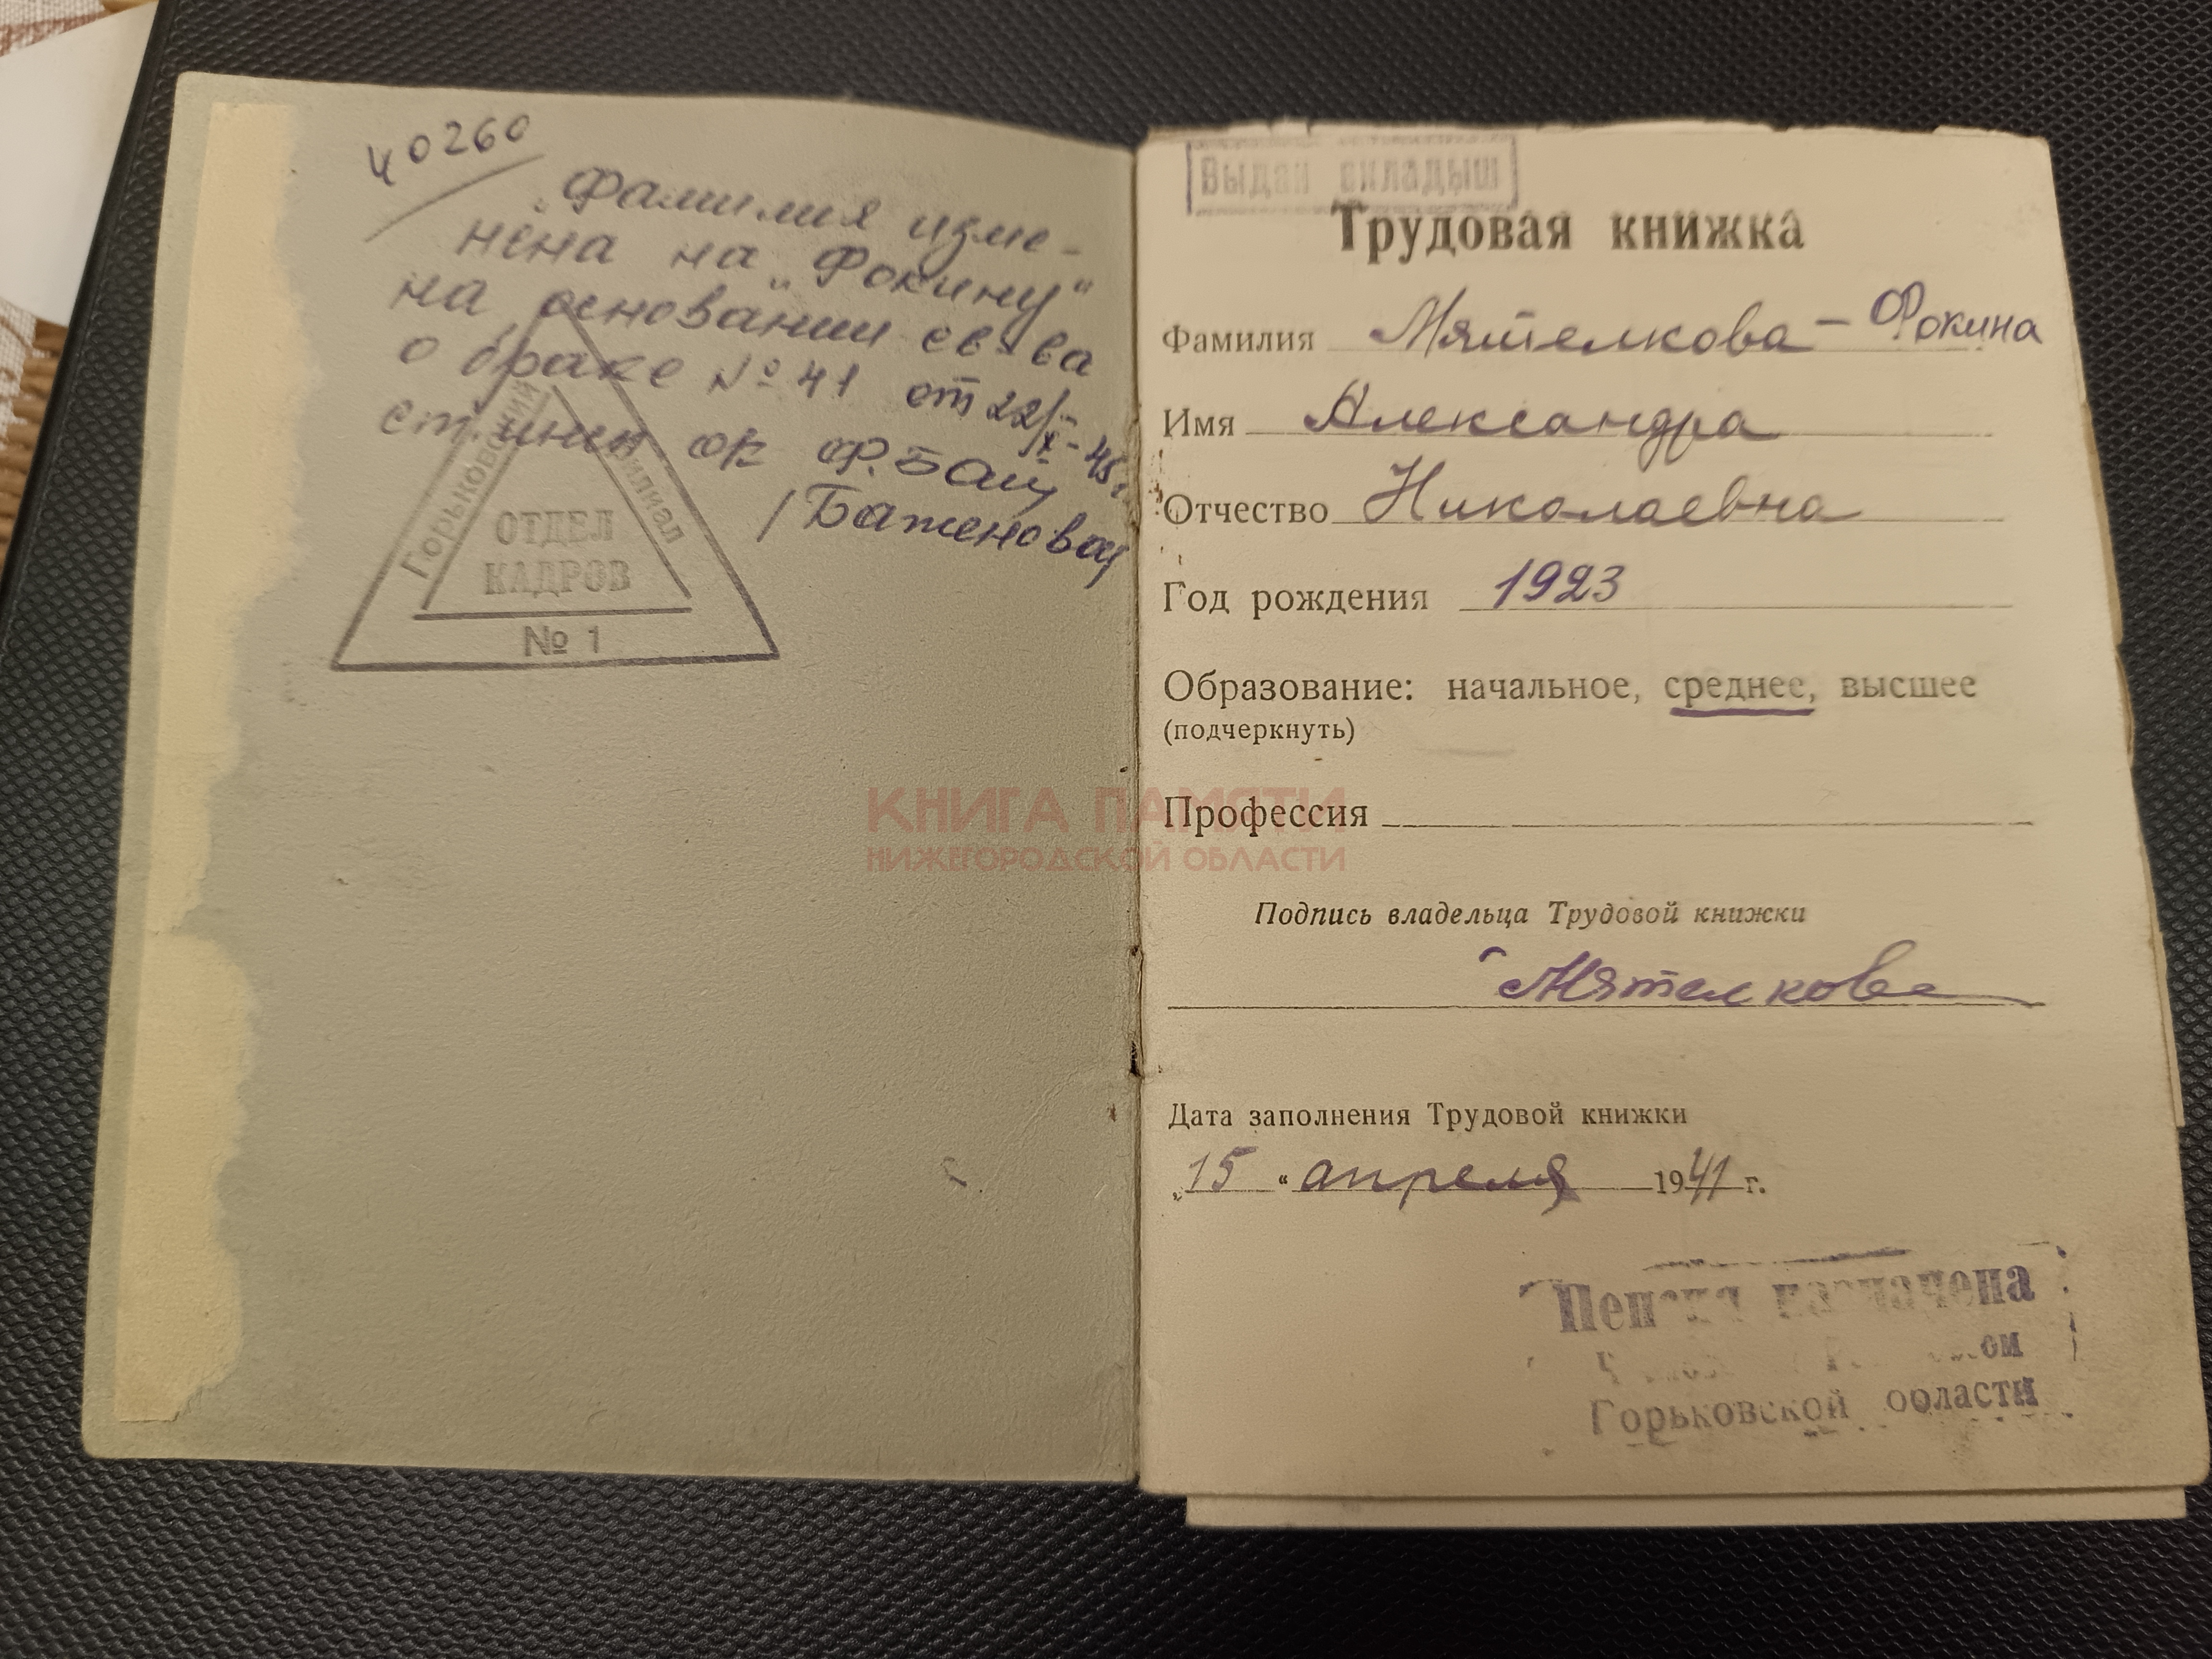 40260
"Фамилия изме-
нена на „Фокину"
на основании св-ва
о браке № 41 от 22/X-45г
ст. инсп ок
/Баженова/
Горьковский филиал
ОТДЕЛ
КАДРОВ
№ 1
Выдан вкладыш
Трудовая книжка
Фамилия Мятелкова - Фокина
Имя Александра
Отчество Николаевна
Год рождения 1923
Образование: начальное, среднее, высшее
(подчеркнуть)
Профессия
КНИГА ПАМЯТИ
НИЖЕГОРОДСКОЙ ОБЛАСТИ
Подпись владельца Трудовой книжки
Мятелкова
Дата заполнения Трудовой книжки
„15" апреля 1941 г.
Пенсия назначена
Горьковской области